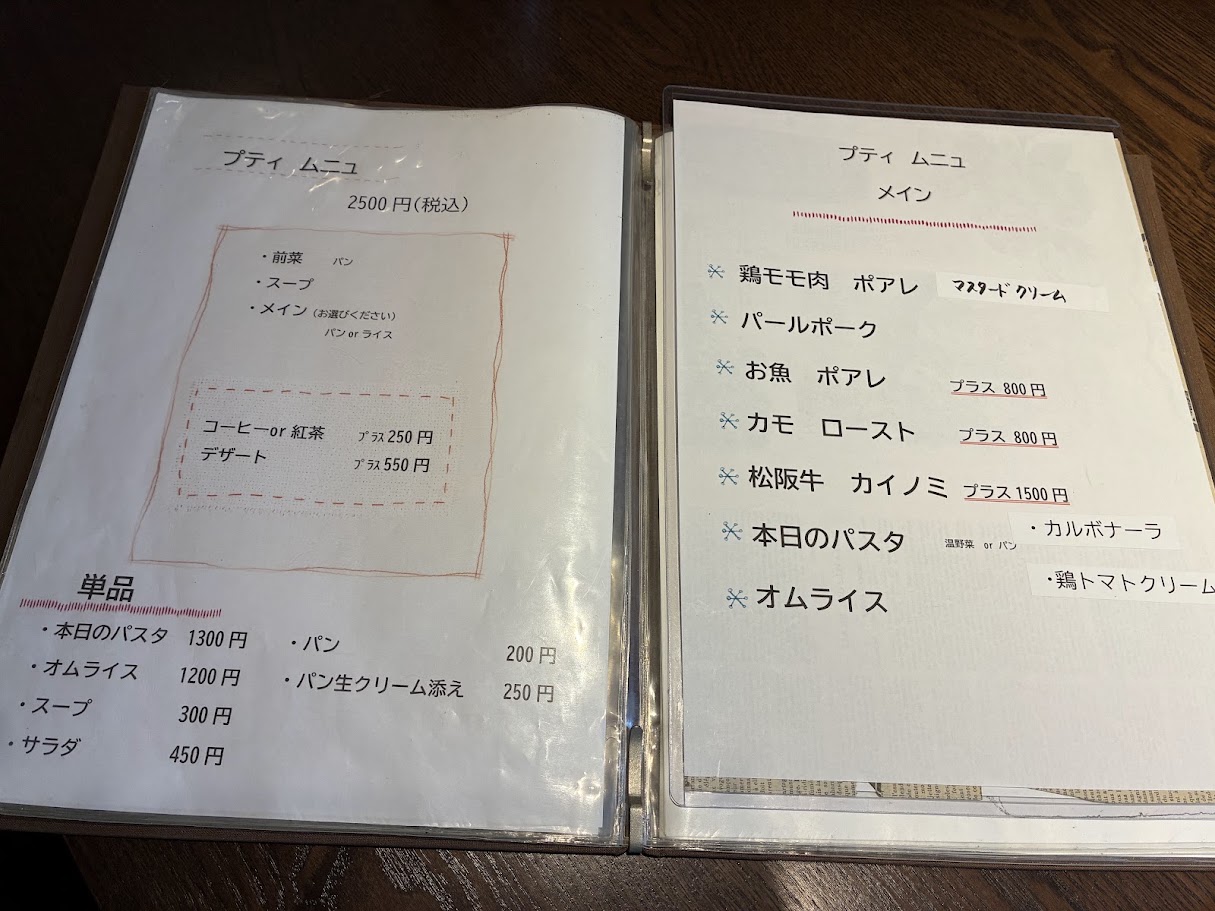 プティ ムニュ
2500 円(税込)
・前菜 パン
・スープ
・メイン (お選びください)
パン or ライス
コーヒーor 紅茶 プラス 250 円
デザート プラス 550 円
単品
・本日のパスタ 1300 円
・オムライス 1200 円
・スープ 300 円
・サラダ 450 円
・パン 200 円
・パン生クリーム添え 250 円
プティ ムニュ
メイン
鶏モモ肉 ポアレ マスタードクリーム
パールポーク
お魚 ポアレ プラス 800 円
カモ ロースト プラス 800 円
松阪牛 カイノミ プラス 1500 円
本日のパスタ 温野菜 or パン ・カルボナーラ
・鶏トマトクリーム
オムライス